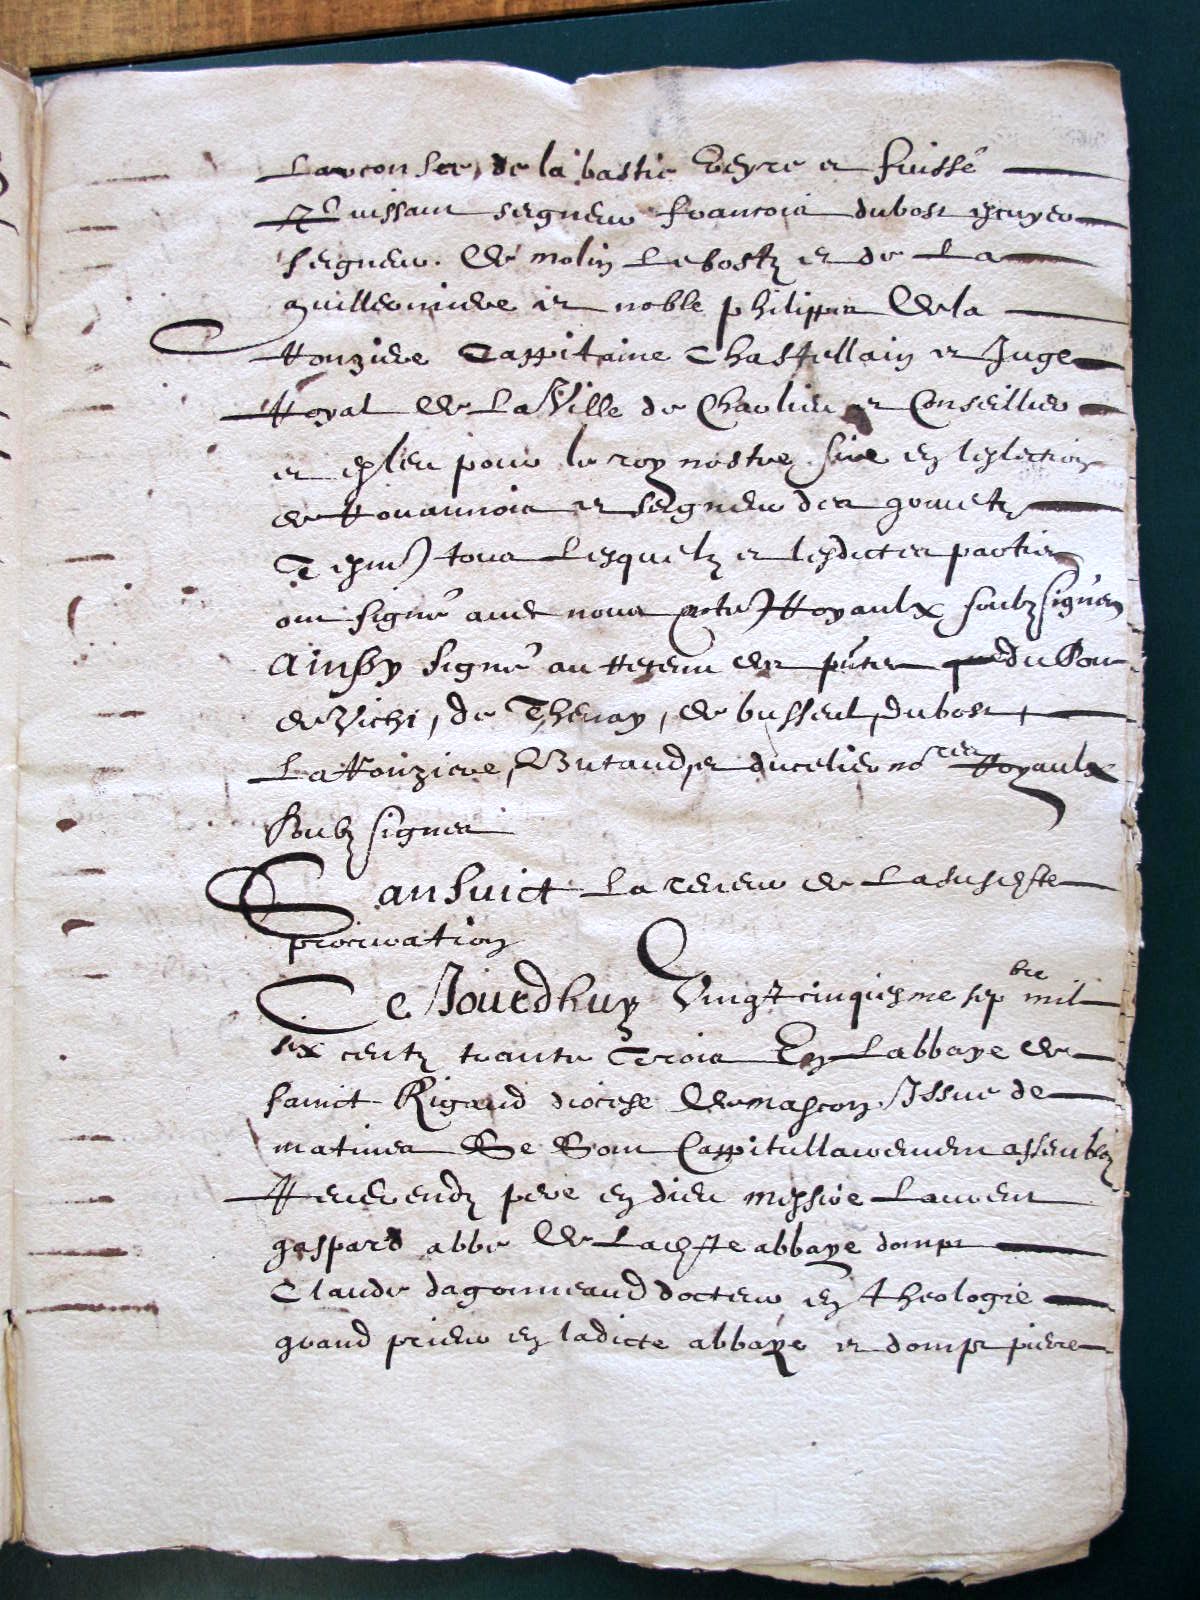 de la bastie Veyre et fuissé
Puissant seigneur francois dubost escuyer
seigneur de molin Lebostz et de La
guillermiere et noble philippes de la
Ronziere Cappitaine Chastellain et Juge
Royal de La Ville de Charlieu et Conseillier
et esleu pour le roy nostre sire en leslection
de Rouannois et seigneur des gouuetz
Tesm) tous Lesquelz et lesdictes parties
ont signé auec nous Royaulx soubzsignes
ainsy signé au Retenu des pntes du Bou
de Vichi, de Thenay, de busseul, dubost,
La Ronziere, Butaud, et ducelier no res Royaulx
Soubz signes
Sansuict La teneur de Lasuscste
procuration
Ce Jourdhuy Vingt cinquiesme sep bre mil
six centz trante Trois En Labbaye de
sainct Rigaud diocese de mascon Issue de
matines Se Sont Cappitullairement assemblez
Reuerendz pere en dieu messire Laurent
gaspard abbe de Lacste abbaye domps
Claude dagonneaud docteur en theologie
grand prieur en ladicte abbaye et domps pierre